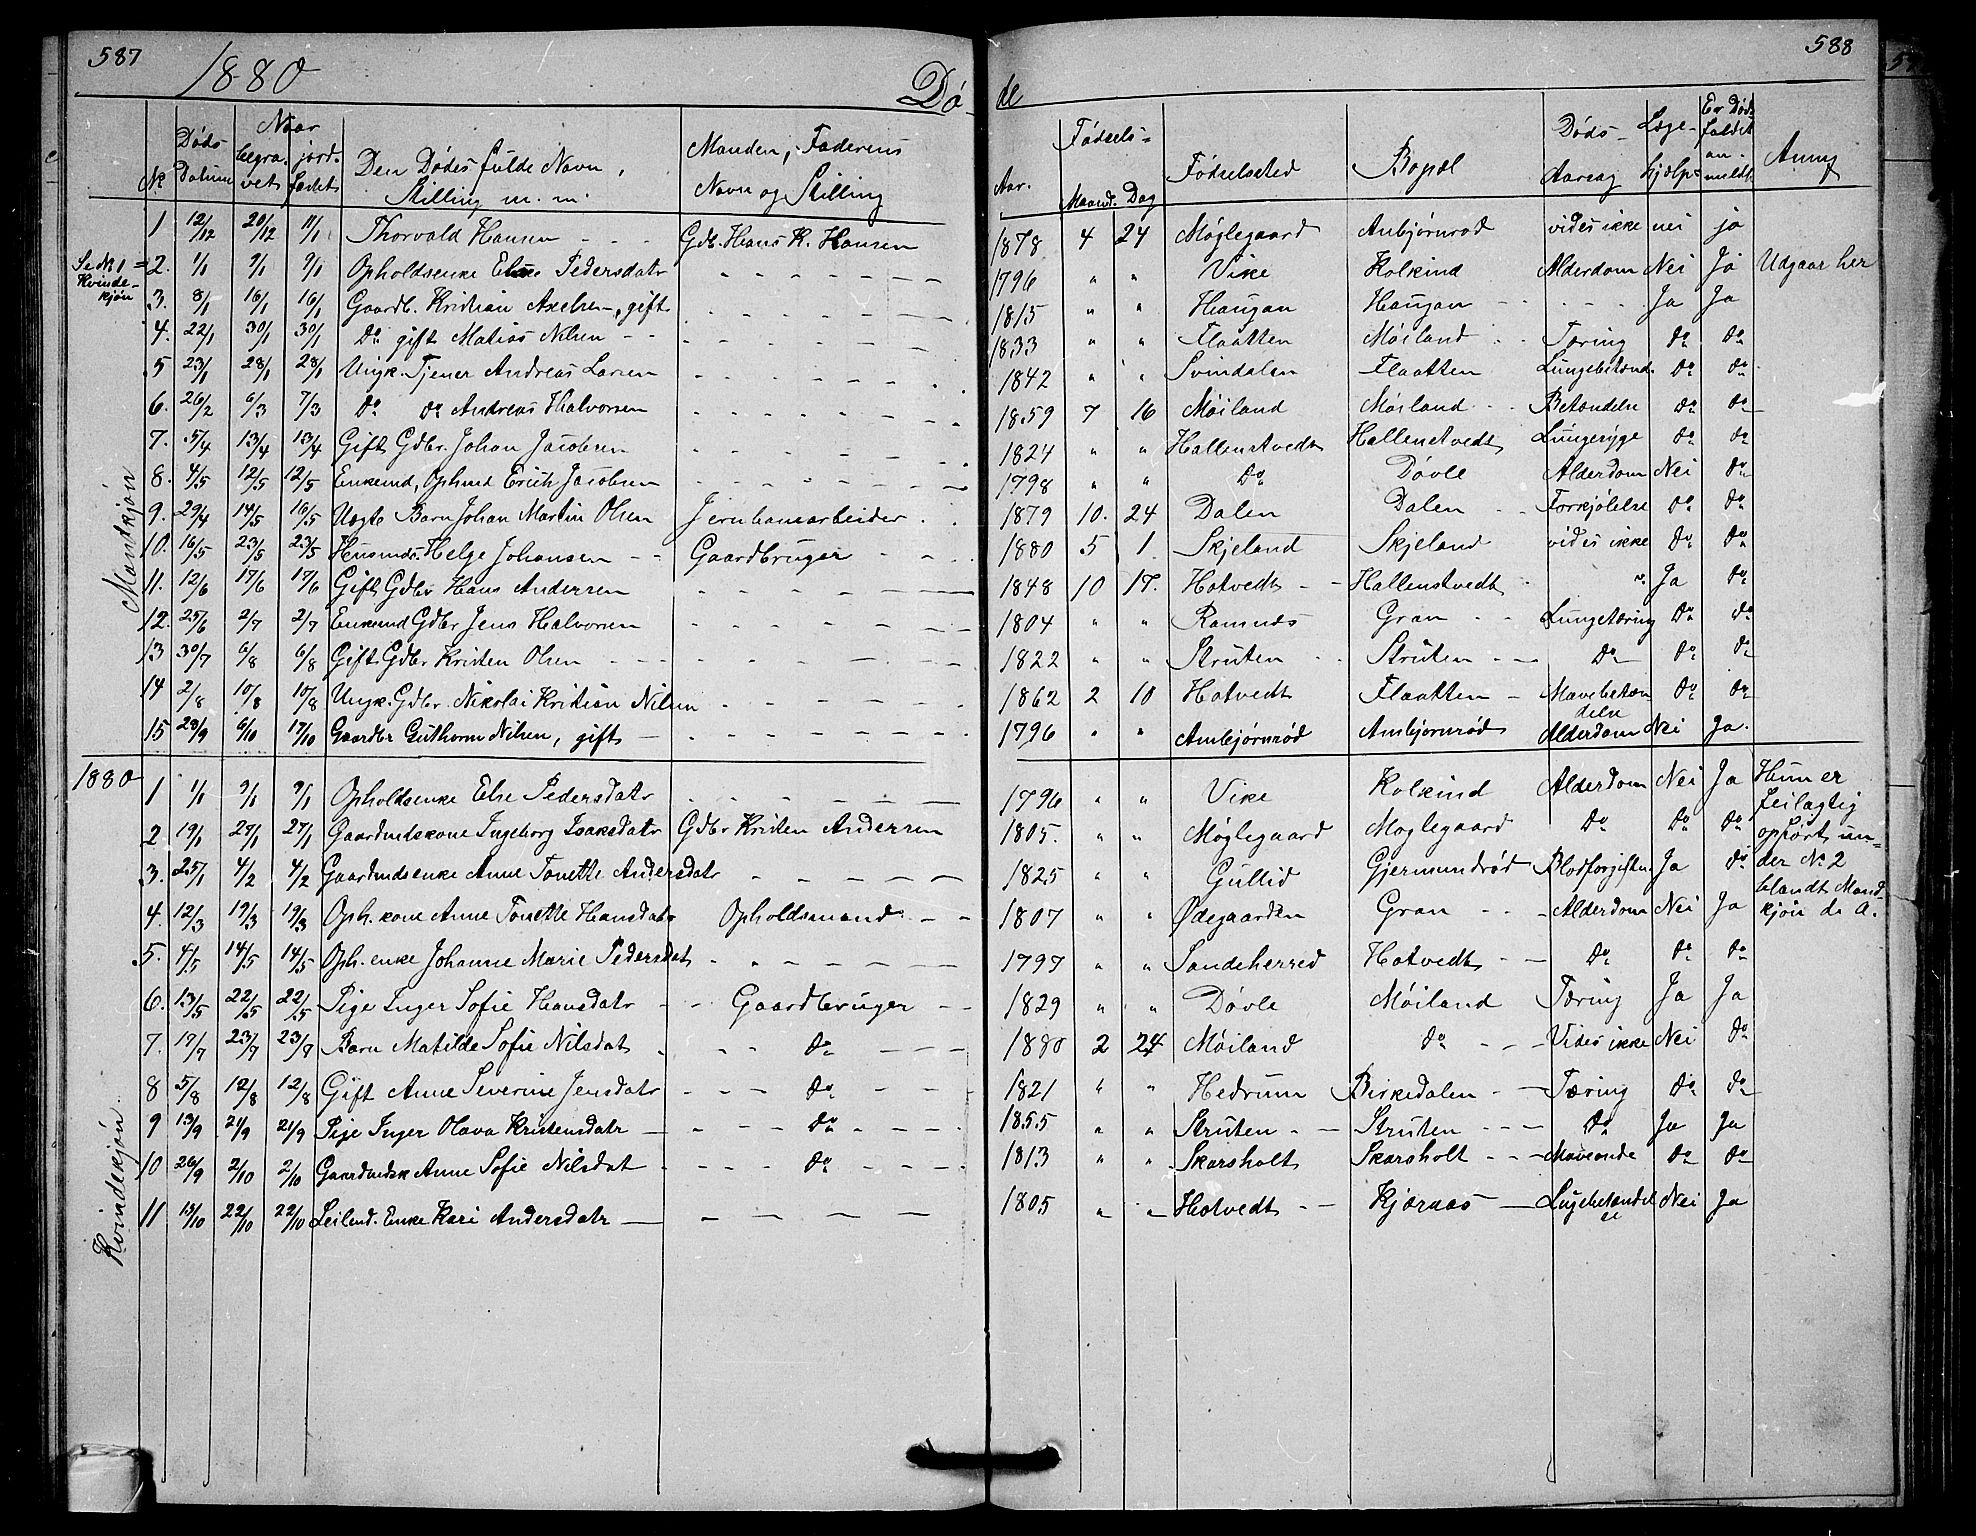 587 1880 Dø
588 de
№ Døds Datum Naar begra- vet jord- fæstet Den Dødes fulde Navn, Stilling m. m. Manden, Faderens Navn og Stilling Fødsels- Aar. Maaned. Dag Fødselsted Bopæl Døds- Aarsag Læge- hjælp Er Døds- faldet an- meldt Anmg
1 12/12 20/12 11/1 Thorvald Hansen - - - Gdb. Hans K. Hansen 1878 4 24 Møglegaard Anbjørnrød vides ikke nei ja
Se № 1 Kvinde- kjøn = 2. 1/1 9/1 9/1 Opholdsenke Else Pedersdatr 1796 " " Vike Kolkind Alderdom Nei Ja Udgaar her
3. 8/1 16/1 16/1 Gaardb. Kristian Axelsen, gift 1815 " " Haugan Haugan - - - Ja Ja
4. 22/1 30/1 30/1 Do gift Matias Nilsen - - 1833 " " Flaatten Møiland Tæring do do
5 23/1 28/1 28/1 Ungk. Tjener Andreas Larsen 1842 " " Svindalen Flaatten Lungebetænd. do do
6. 26/2 6/3 7/3 Do do Andreas Halvorsen 1859 7 16 Møiland Møiland Betændelse do do
7. 5/4 13/4 13/4 Gift Gdbr. Johan Jacobsen 1824 " " Hallenstvedt Hallenstvedt Lungesyge do do
8. 4/5 12/5 12/5 Enkemd, Ophmd Erich Jacobsen 1798 " " Do Døvle Alderdom Nei do
9. 29/4 14/5 16/5 Uægte Barn Johan Martin Olsen Jernbanearbeider 1879 10. 24 Dalen Dalen Forkjølelse do do
10. 16/5 23/5 23/5 Husmds. Helge Johansen - - Gaardbruger 1880 5 1 Skjeland Skjeland vides ikke do do
11. 12/6 17/6 17/6 Gift Gdbr Hans Andersen 1848 10 17. Hotvedt Hallenstvedt " Ja do
12. 25/6 2/7 2/7 Enkemd Gdbr Jens Halvorsen 1804 " " Ramnæs Gran Lungetæring do do
13 30/7 6/8 6/8 Gift Gdbr Kristen Olsen - - 1822 " " Struten Struten Do do do
14 2/8 10/8 10/8 Ungk. Gdbr. Nikolai Kristian Nilsen 1862 2 10 Hotvedt Flaatten Mavebetæn delse do do
15 28/9 6/10 17/10 Gaardbr Guthorm Nilsen, gift - 1796 " " Ambjørnrød Ambjørnrød Alderdom Nei Ja
Mandkjøn
1880
1 1/1 9/1 9/1 Opholdsenke Else Pedersdatr 1796 " " Vike Kolkind Alderdom Nei Ja Hun er
feilagtig
2 19/1 27/1 27/1 Gaardmdskone Ingeborg Isaksdatr Gdbr Kristen Andersen 1805. " " Møglegaard Møglegaard Do Do do opført un-
3. 25/1 4/2 4/2 Gaardmdsenke Anne Tonette Andersdatr 1825 " " Gullid Gjermundrød Blodforgiftn Ja do der № 2
blandt Mand-
4. 12/3 19/3 19/3 Oph. kone Anne Tonette Hansdatr Opholdsmand 1807 " " Ødegaarden Gran Alderdom Nei Ja kjøn d. A.
5. 4/5 14/5 14/5 Oph. enke Johanne Marie Pedersdat 1797 " " Sandeherred Hotvedt Do do do
6. 13/5 22/5 22/5 Pige Inger Sofie Hansdatr - - Gaardbruger 1829 " " Døvle Møiland Tæring Ja Ja
7. 17/7 23/7 23/7 Barn Matilde Sofie Nilsdat - - Do 1880 2 24 Møiland do Vides ikke Nei do
8 5/8 12/8 12/8 Gift Anne Severine Jensdatr - - - Do 1821 " " Hedrum Birkedalen Tæring do do
9 13/9 21/9 21/9 Pige Inger Olava Kristensdatr - Do 1855 " " Struten Struten Do Ja Ja
10 26/9 2/10 2/10 Gaardmdsk Anne Sofie Nilsdat - - - Do 1813 " " Skarsholt Skarsholt Maveonde do do
11 13/10 22/10 22/10 Leilend. Enke Kari Andersdatr - 1805 " " Hotvedt Kjærnaas Nei Ja
Kvindekjøn.